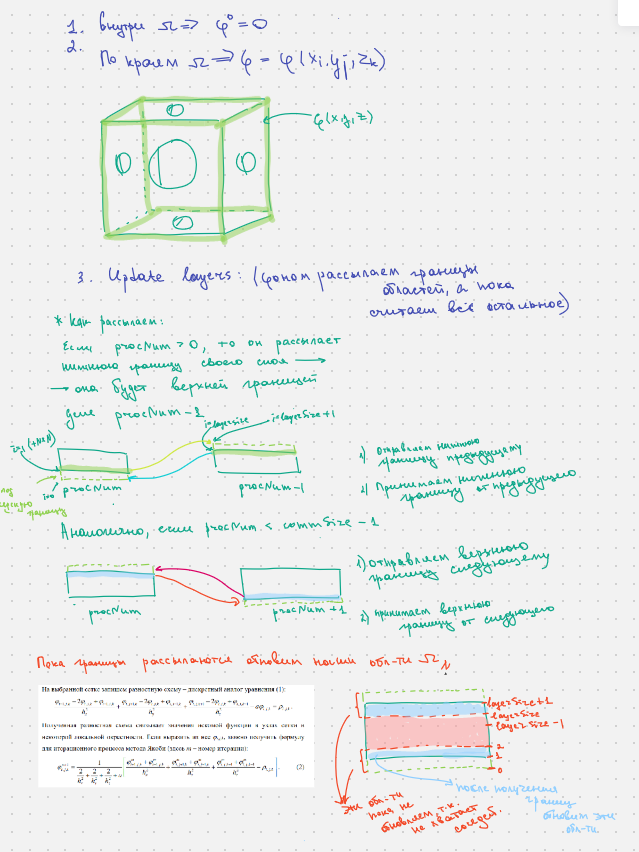 1. внутри Ω ⇒ φ⁰ = 0
2. По краям Ω ⇒ φ = φ(xi, yj, zk)
φ(x, y, z)
3. Update layers: (фоном рассылаем границы
областей, а пока
считаем всё остальное)
* Как рассылаем:
Если procNum > 0, то он рассылает
нижнюю границу своего слоя →
→ она будет верхней границей
для procNum-1
i=layerSize
i=layerSize+1
i=0
procNum
procNum-1
границу
1) отправляем нижнюю
границу предыдущему
2) Принимаем нижнюю
границу от предыдущего
Аналогично, если procNum < commSize - 1
procNum
procNum+1
1) отправляем верхнюю
границу следующему
2) принимаем верхнюю
границу от следующего
Пока границы рассылаются обновим наши обл-ти Ω
На выбранной сетке запишем разностную схему – дискретный аналог уравнения (1):
Полученная разностная схема связывает значение искомой функции в узлах сетки в
некоторой локальной окрестности. Если выразить из нее φi,j,k, можно получить формулу
для итерационного процесса метода Якоби (здесь m – номер итерации):
(2)
layerSize+1
layerSize
layerSize-1
2
1
0
эти обл-ти
пока не
обновляем т.к.
не хватает
соседей.
после получения
границ
обновим эти
обл-ти